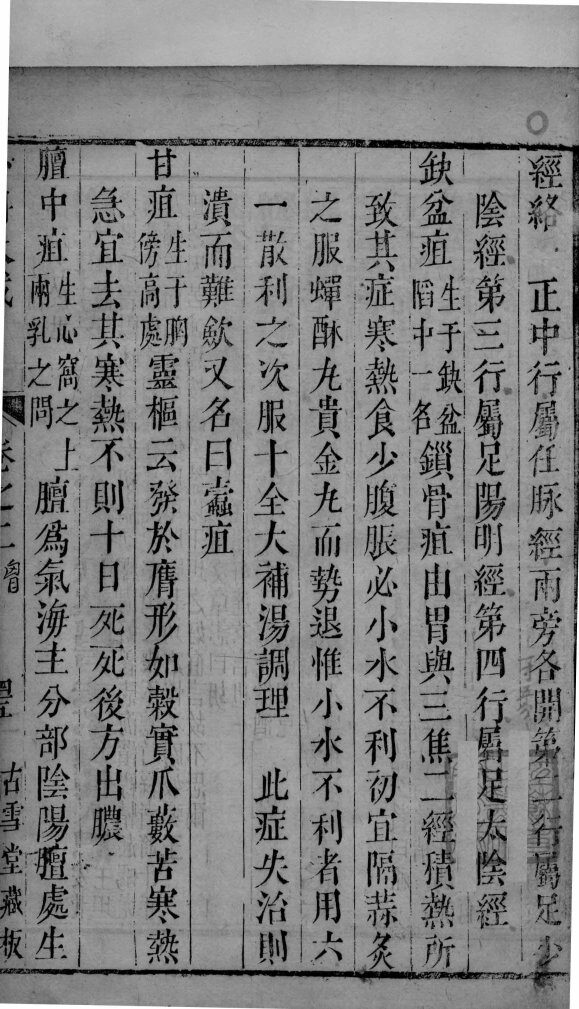 經絡 正中行屬任脉經兩旁各開第二行屬足少
陰經第三行屬足陽明經第四行屬足太陰經
缺盆疽生于缺盆䧟中一名鎖骨疽由胃與三焦二經積熱所
致其症寒熱食少腹脹必小水不利初宜隔蒜灸
之服蟬酥九貴金九而勢退惟小水不利者用六
一散利之次服十全大補湯調理 此症失治則
潰而難歛又名曰蠹疽
甘疽生于胸傍高處靈樞云發於膺形如穀實爪蔞苦寒熱
急宜去其寒熱不則十日死死後方出膿
膻中疽生心窩之上兩乳之間膻爲氣海主分部陰陽膻處生
卷之二 胷 古雪堂藏板